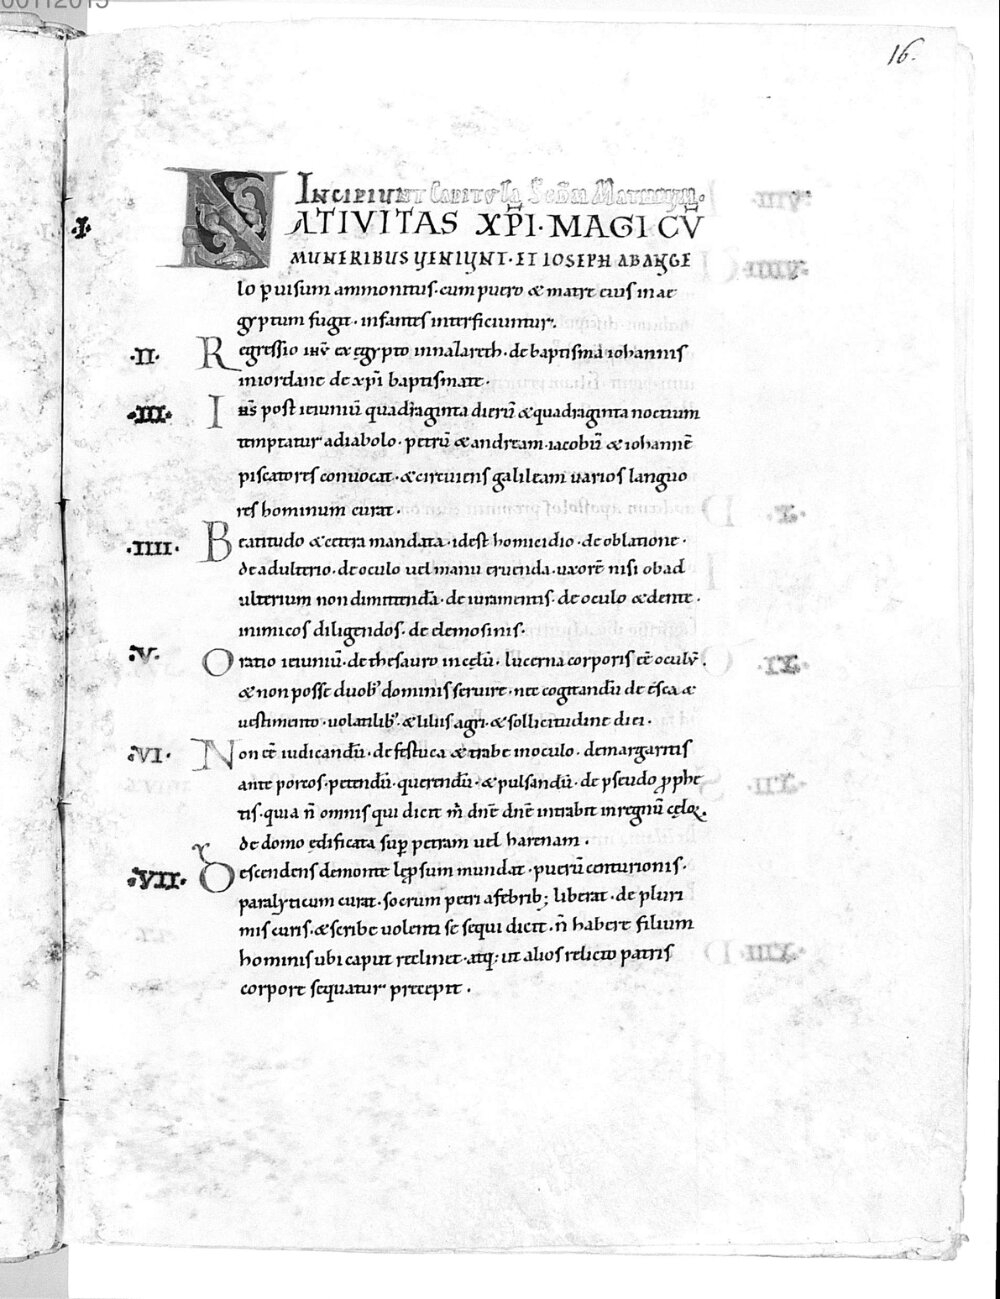 16.
INCIPIUNT CAPITULA SECDM MATHEUM.
.I. NATIVITAS XPI·MAGI CŪ
MUNERIBUS VENIUNT·ET IOSEPH ABANGE
lo p uisum ammonitus·cum puero & matre eius in ae
gyptum fugit·infantes interficiuntur.
.II. Regressio ihū ex egypto innazareth·de baptisma iohannis
iniordane de xpi baptismate·
.III. Ihs post ieiuniū quadraginta dierū & quadraginta noctium
temptatur adiabolo·petrū & andream·iacobū & iohannē
piscatores conuocat·& circuiens galileam uarios languo
res hominum curat·
.IIII. Beatitudo & cetera mandata·idest homicidio·de oblatione·
de adulterio·de oculo uel manu eruenda·uxorē nisi obad
ulterium non dimittendā·de iuramentis·de oculo & dente·
inimicos diligendos·de elemosinis·
.V. Oratio ieiuniū·de thesauro in cęlū·lucerna corporis ēē oculū·
& non posse duob; dominis seruire·nec cogitandū de esca &
uestimento·uolatilib; & liliis agri·& sollicitudine diei·
.VI. Non ēē iudicandū·de festuca & trabe inoculo·demargaritis
ante porcos·petendū·querendū·& pulsandū·de pseudo pphe
tis·quia ñ omnis qui dicit m̄ dnē dnē intrabit in regnū cęloꝝ.
de domo edificata sup petram uel harenam·
.VII. Descendens demonte lepsum mundat·puerū centurionis·
paralyticum curat·socrum petri afebrib; liberat·de pluri
mis curis·& scribe uolenti se sequi dicit·ñ habere filium
hominis ubi caput reclinet·atq; ut alios relicto patris
corpore sequatur precepit·